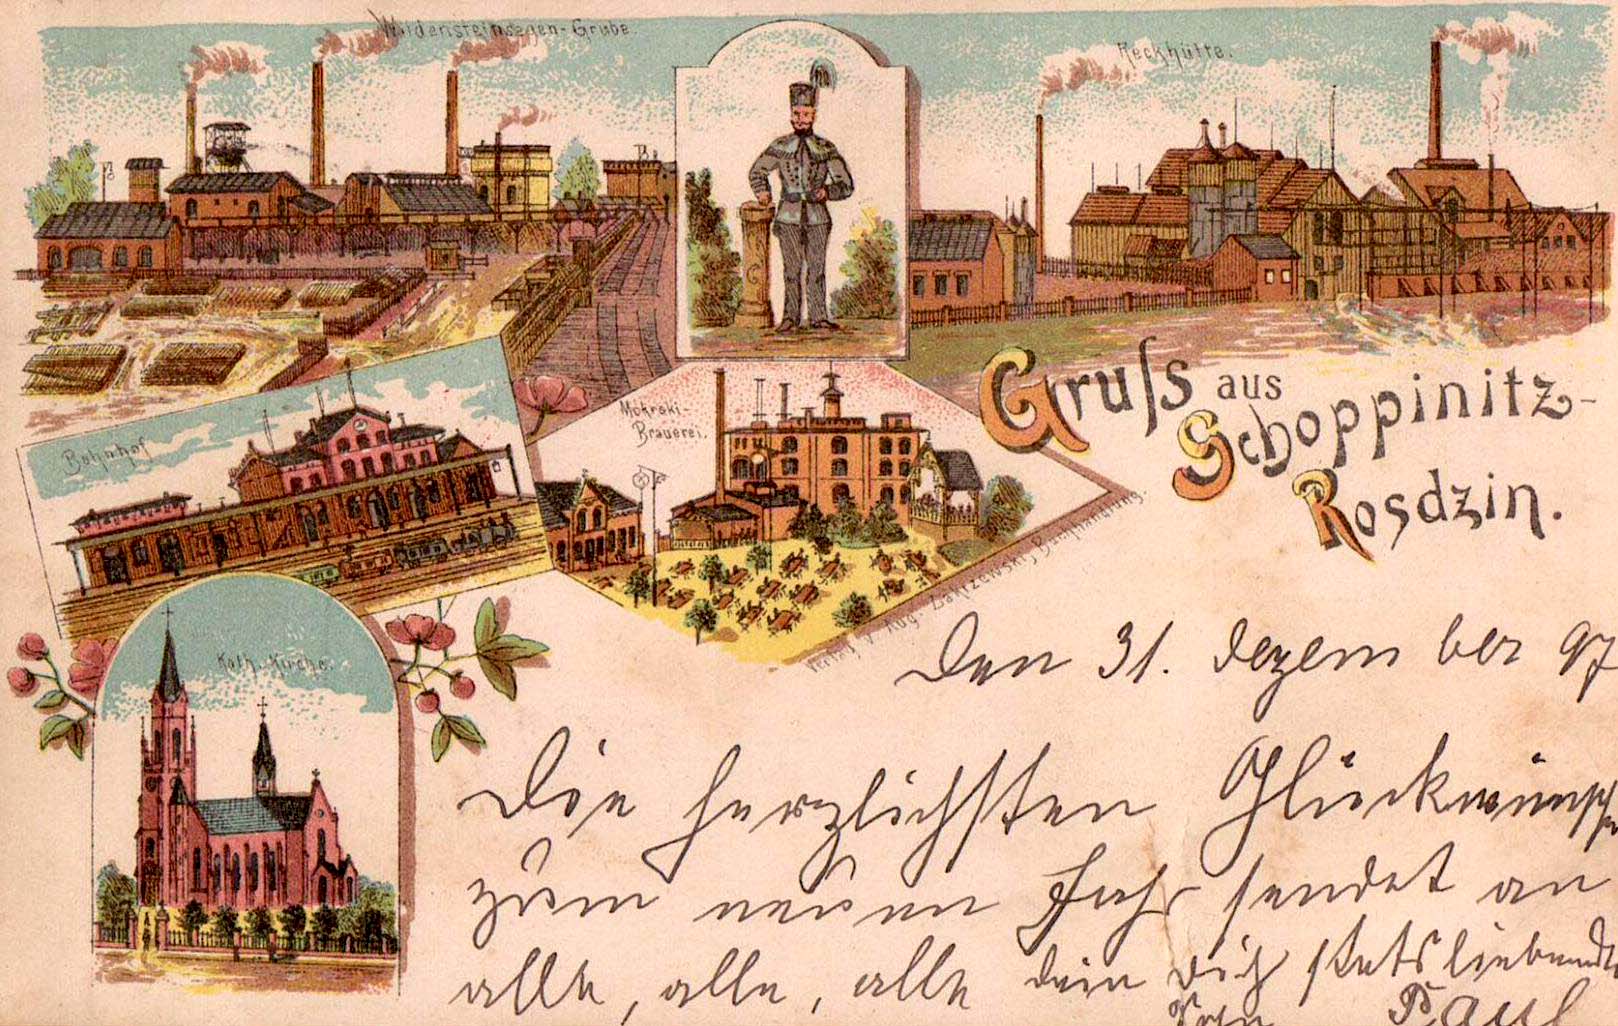 Wildensteinsegen-Grube.
Reckhütte.
Gruss aus
Schoppinitz-
Rosdzin.
Mokrski-
Brauerei.
Bahnhof
Kath. Kirche.
Verlag v. Aug. Zakrzewski, Buchhandlung.
Den 31. Dezember 97
Die herzlichsten Glückwünsche
zum neuen Jahr sendet an
alle, alle, alle dein dich stets liebender
Paul